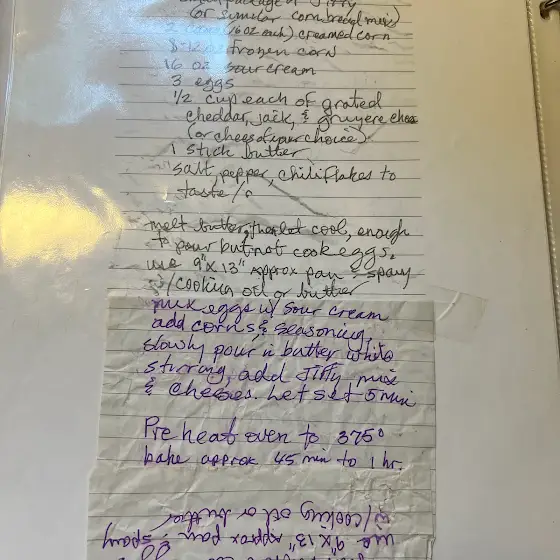 package of Jiffy
(or similar cornbread mix)
2 cans (16 oz each) creamed corn
8-12 oz frozen corn
16 oz sour cream
3 eggs
1/2 cup each of grated
cheddar, jack, & gruyere chees
(or chees of your choice)
1 stick butter
salt, pepper, chili flakes to
taste
melt butter, then let cool, enough
to pour but not cook eggs.
use 9"x13" approx pan & spray
w/cooking oil or butter
mix eggs w/ sour cream
add corns & seasoning,
slowly pour in butter while
stirring, add Jiffy mix
& cheeses. Let set 5 min
Preheat oven to 375°
bake approx 45 min to 1 hr.
w/cooking oil or butter
use 9"x13" approx pan & spray